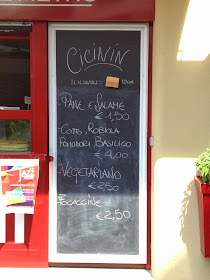 CICININ
-PANE E SALAME
€1,50
-COTTO, ROBIOLA
POMODORI BASILICO
€4,00
-VEGETARIANO
€2,50
-FOCACCINE
€2,50
JAZZ